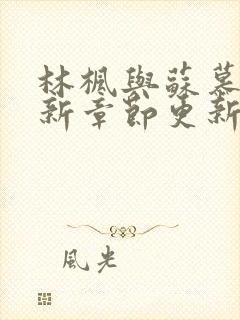 林楓與蘇慕
新章節更新
風光